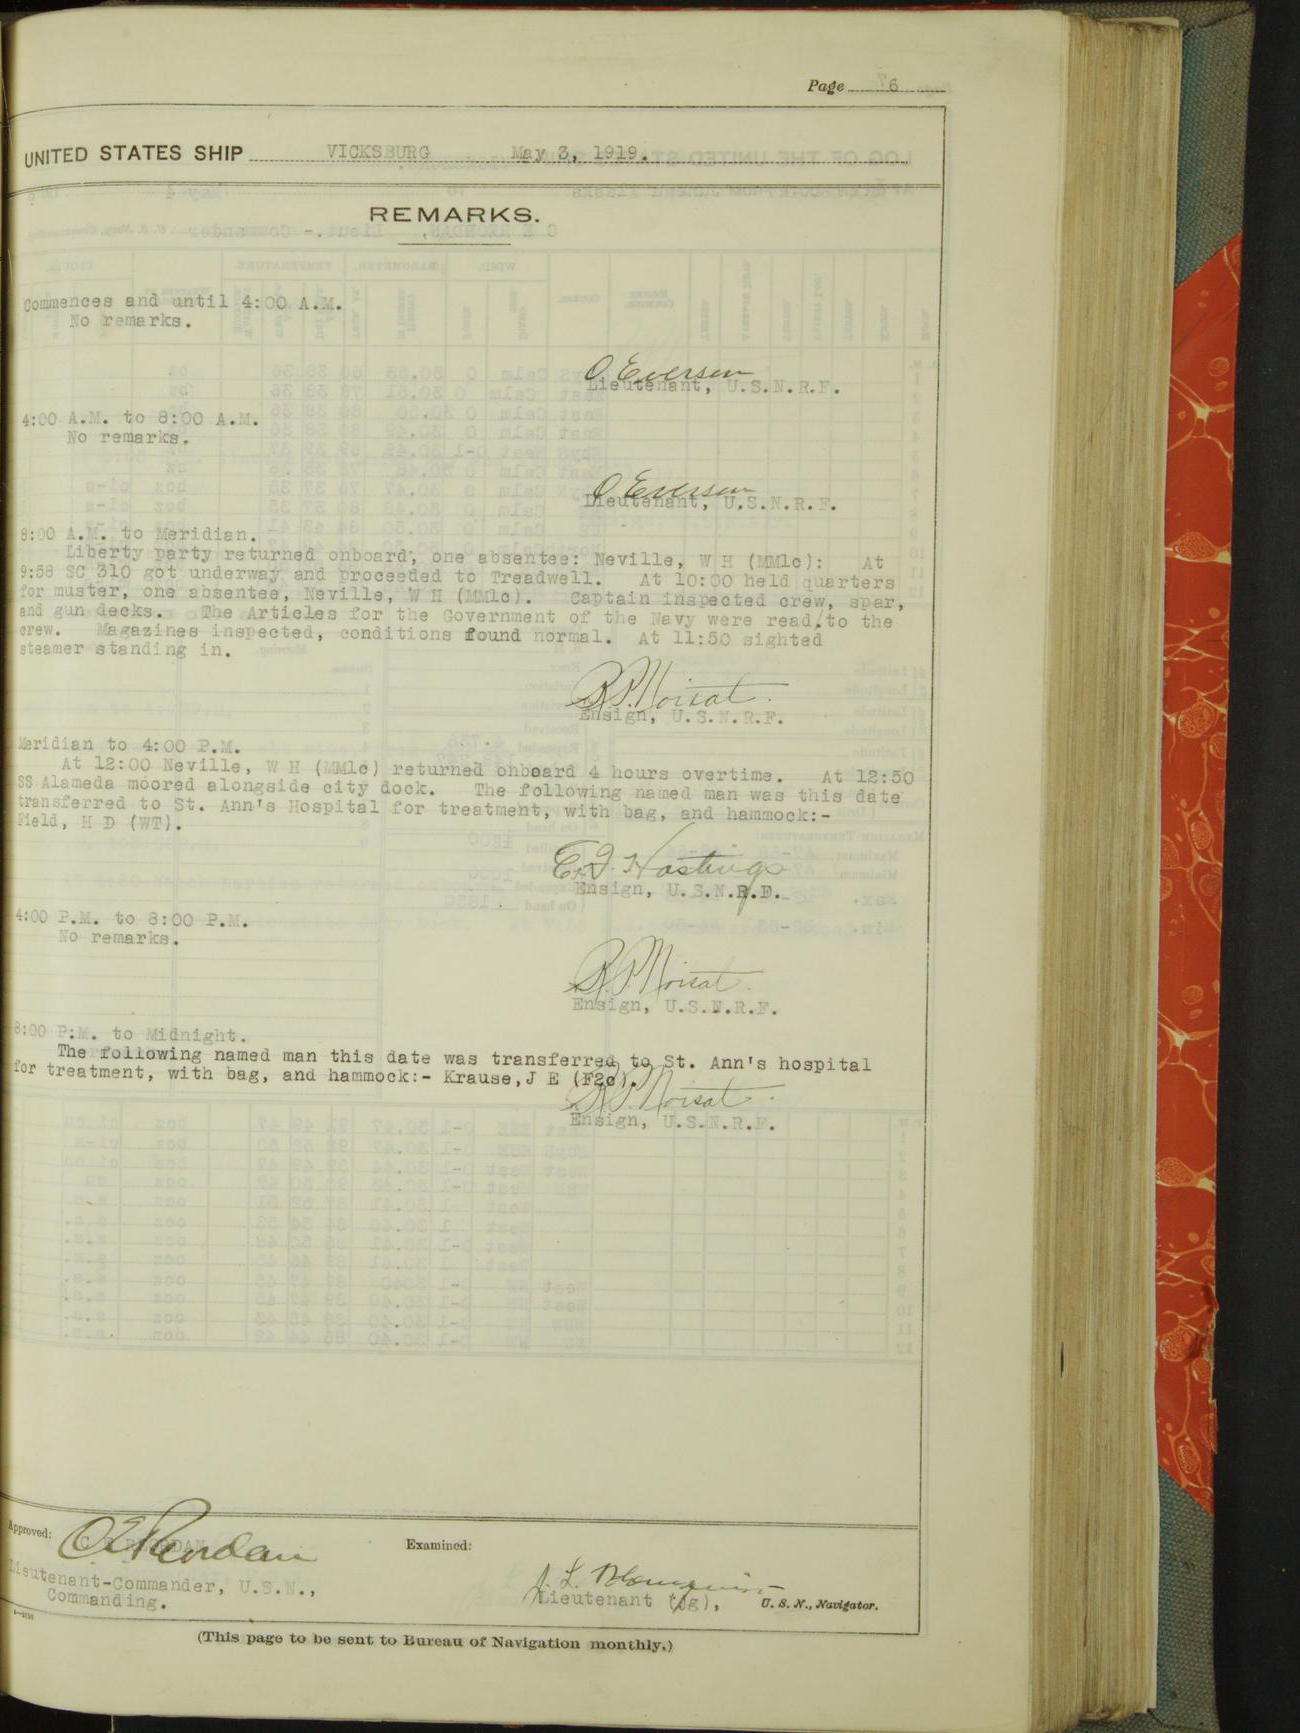 Page 6
UNITED STATES SHIP VICKSBURG May 3, 1919.
REMARKS.
Commences and until 4:00 A.M.
No remarks.
O Eversen
Lieutenant, U.S.N.R.F.
4:00 A.M. to 8:00 A.M.
No remarks.
O Eversen
Lieutenant, U.S.N.R.F.
8:00 A.M. to Meridian.
Liberty party returned onboard, one absentee: Neville, W H (MM1c): At
9:58 SC 310 got underway and proceeded to Treadwell. At 10:00 held quarters
for muster, one absentee, Neville, W H (MM1c). Captain inspected crew, spar,
and gun decks. The Articles for the Government of the Navy were read to the
crew. Magazines inspected, conditions found normal. At 11:50 sighted
steamer standing in.
Ensign, U.S.N.R.F.
Meridian to 4:00 P.M.
At 12:00 Neville, W H (MM1c) returned onboard 4 hours overtime. At 12:50
SS Alameda moored alongside city dock. The following named man was this date
transferred to St. Ann's Hospital for treatment, with bag, and hammock:-
Field, H D (WT).
Hastings
Ensign, U.S.N.R.F.
4:00 P.M. to 8:00 P.M.
No remarks.
Ensign, U.S.N.R.F.
8:00 P:M. to Midnight.
The following named man this date was transferred to St. Ann's hospital
for treatment, with bag, and hammock:- Krause,J E (F2c).
Ensign, U.S.N.R.F.
Approved:
C E RIORDAN
Lieutenant-Commander, U.S.N.,
Commanding.
Examined:
Lieutenant (jg), U. S. N., Navigator.
(This page to be sent to Bureau of Navigation monthly.)